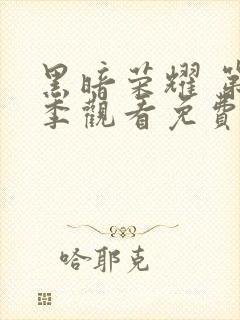 黑暗荣耀 第
季觀看免費
哈耶克